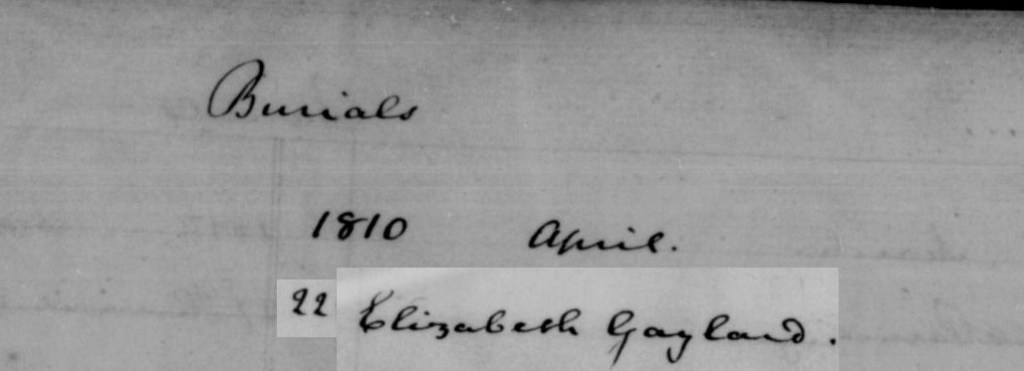 Burials
1810 April.
22 Elizabeth Gayland.